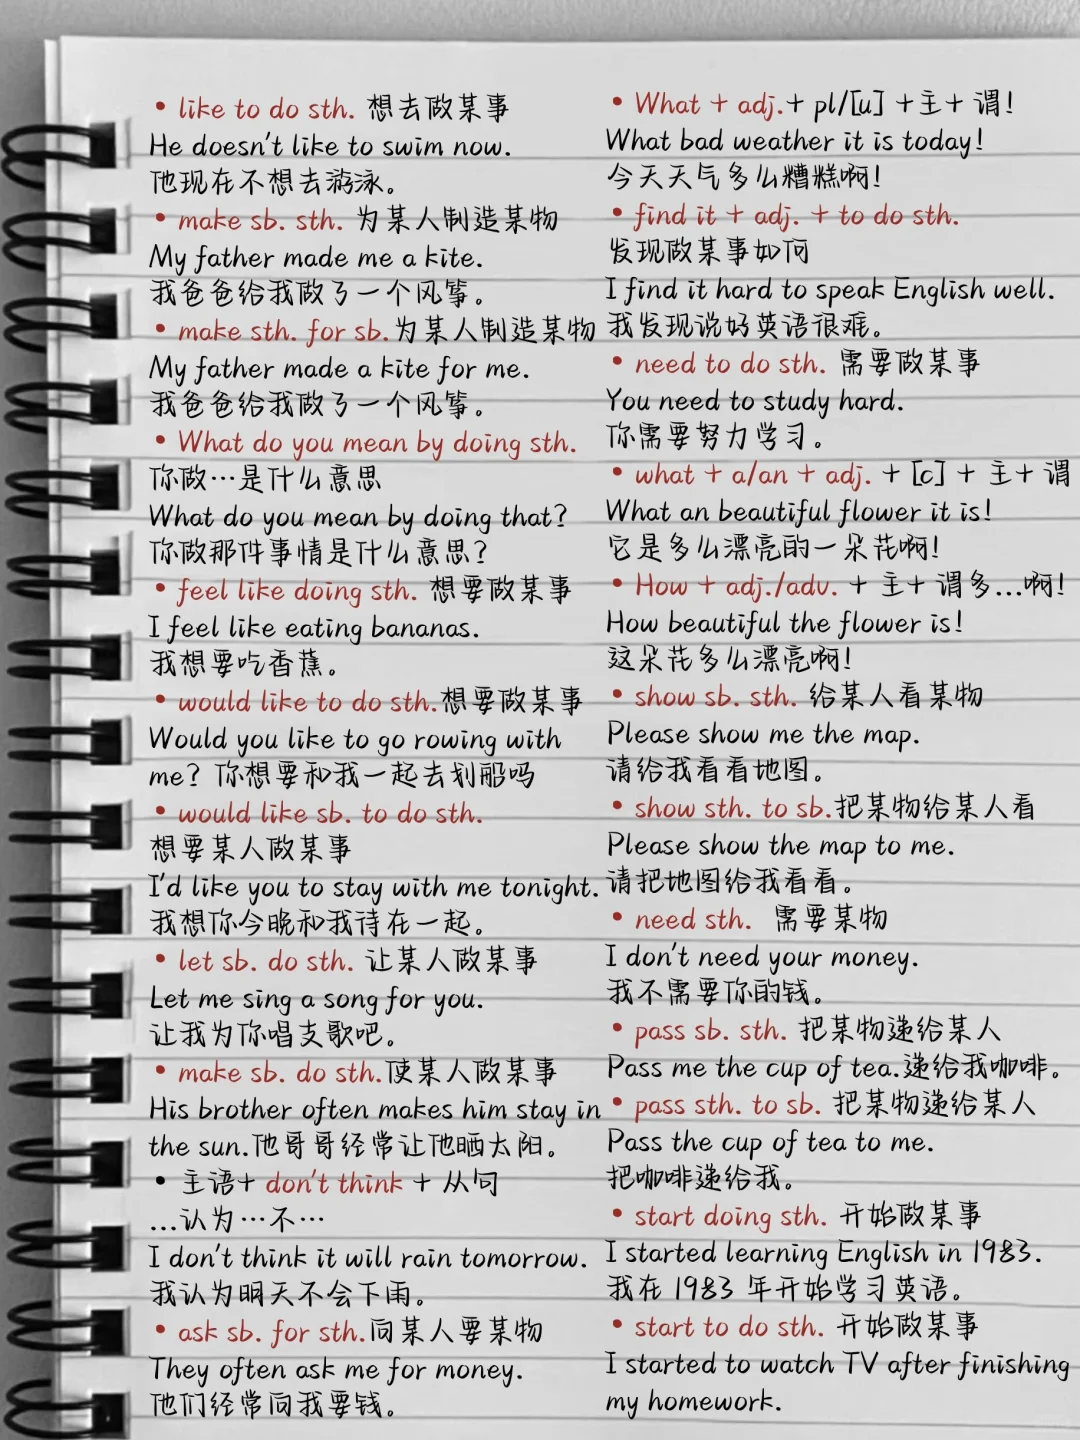 • like to do sth. 想去做某事
He doesn't like to swim now.
他现在不想去游泳。
• make sb. sth. 为某人制造某物
My father made me a kite.
我爸爸给我做了一个风筝。
• make sth. for sb.为某人制造某物
My father made a kite for me.
我爸爸给我做了一个风筝。
• What do you mean by doing sth.
你做…是什么意思
What do you mean by doing that?
你做那件事情是什么意思?
• feel like doing sth. 想要做某事
I feel like eating bananas.
我想要吃香蕉。
• would like to do sth.想要做某事
Would you like to go rowing with
me? 你想要和我一起去划船吗
• would like sb. to do sth.
想要某人做某事
I'd like you to stay with me tonight.
我想你今晚和我待在一起。
• let sb. do sth. 让某人做某事
Let me sing a song for you.
让我为你唱支歌吧。
• make sb. do sth.使某人做某事
His brother often makes him stay in
the sun.他哥哥经常让他晒太阳。
• 主语+ don't think + 从句
...认为…不…
I don't think it will rain tomorrow.
我认为明天不会下雨。
• ask sb. for sth.向某人要某物
They often ask me for money.
他们经常向我要钱。
• What + adj.+ pl/[u] +主+ 谓!
What bad weather it is today!
今天天气多么糟糕啊!
• find it + adj. + to do sth.
发现做某事如何
I find it hard to speak English well.
我发现说好英语很难。
• need to do sth. 需要做某事
You need to study hard.
你需要努力学习。
• what + a/an + adj. + [c] + 主+ 谓
What an beautiful flower it is!
它是多么漂亮的一朵花啊!
• How + adj./adv. + 主+ 谓多...啊!
How beautiful the flower is!
这朵花多么漂亮啊!
• show sb. sth. 给某人看某物
Please show me the map.
请给我看看地图。
• show sth. to sb.把某物给某人看
Please show the map to me.
请把地图给我看看。
• need sth. 需要某物
I don't need your money.
我不需要你的钱。
• pass sb. sth. 把某物递给某人
Pass me the cup of tea.递给我咖啡。
• pass sth. to sb. 把某物递给某人
Pass the cup of tea to me.
把咖啡递给我。
• start doing sth. 开始做某事
I started learning English in 1983.
我在 1983 年开始学习英语。
• start to do sth. 开始做某事
I started to watch TV after finishing
my homework.